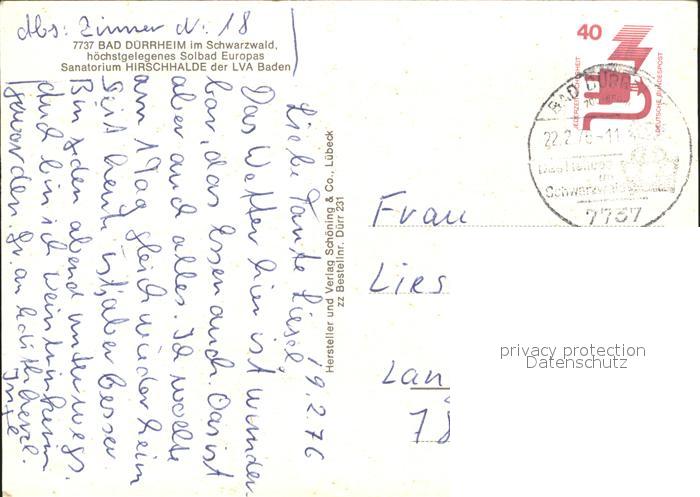 Abs: Zimmer N: 18
7737 BAD DÜRRHEIM im Schwarzwald,
höchstgelegenes Solbad Europas
Sanatorium HIRSCHHALDE der LVA Baden
19.2.76
Liebe Tante Liesel,
Das Wetter hier ist wunder-
bar, das Essen auch. Das ist
aber auch alles. Ich wollte
am 1 Tag gleich wieder heim
Seit heute ists aber besser
Bin jeden abend unterwegs.
und bin ich Weintrinkerin
geworden.
Inge
Hersteller und Verlag Schöning & Co., Lübeck
zz Bestellnr. Dürr 231
40
JEDERZEIT SICHERHEIT
DEUTSCHE BUNDESPOST
BAD DÜRR
22.2.76-11
Das Heilbad
im
Schwarzwald
7737
Frau
Lies
Lan
78
privacy protection
Datenschutz